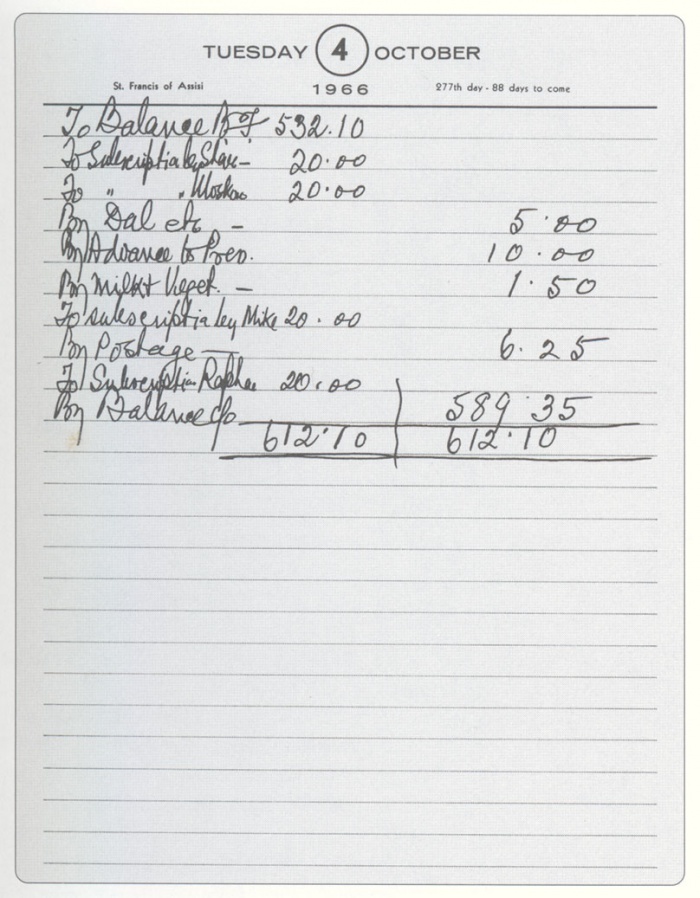 TUESDAY 4 OCTOBER
St. Francis of Assisi 1966 277th day - 88 days to come
To Balance B/f 532.10
To Subscriptia by - 20.00
To " " Moskow 20.00
By Dal etc - 5.00
By Advance to Pren. 10.00
By Milk + Veget. - 1.50
To subscriptia by Mike 20.00
By Postage - 6.25
To Subscriptia Rapha 20.00
By Balance c/o 589.35
612.10 612.10